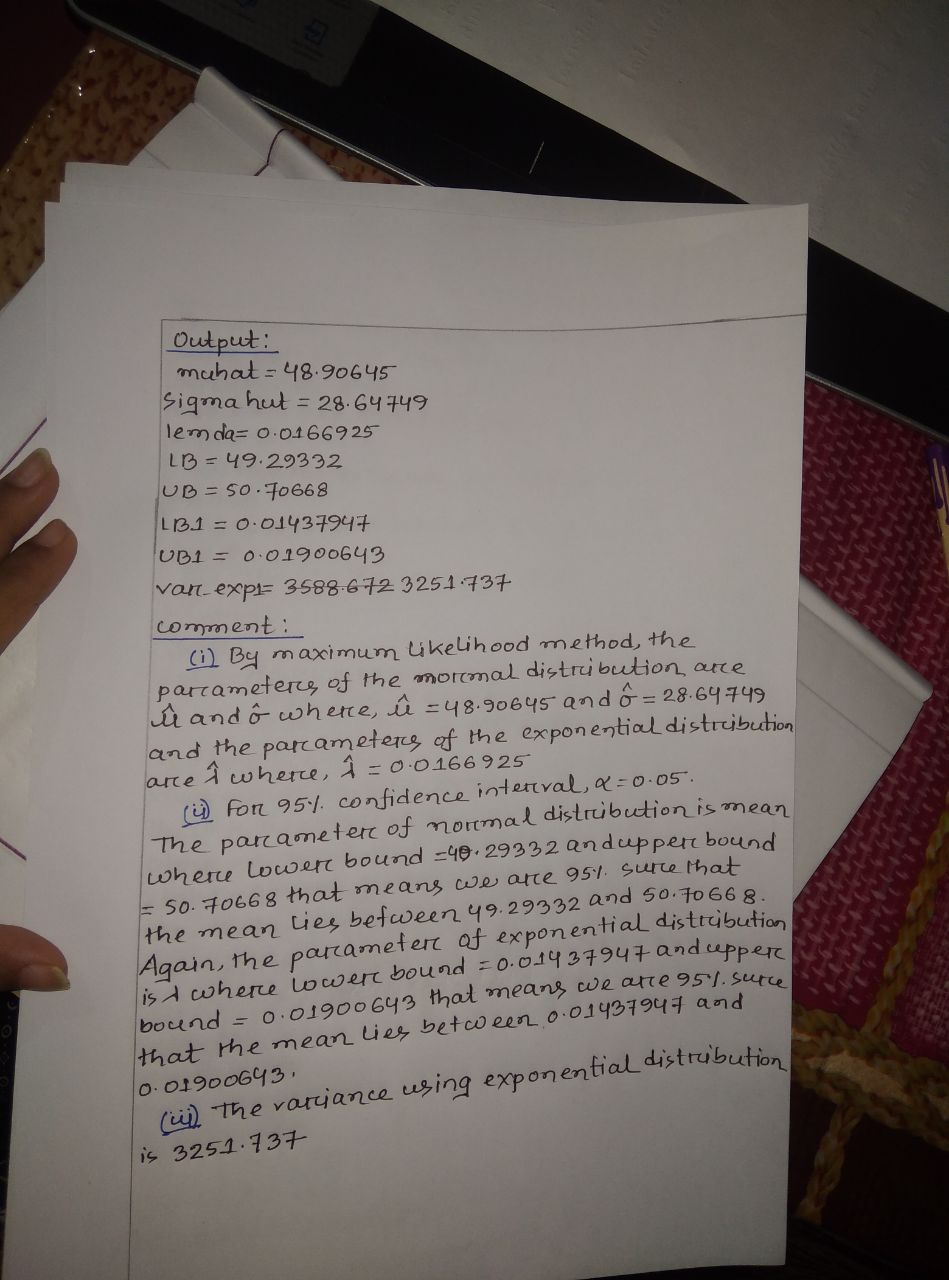 Output:
muhat = 48.90645
Sigma hut = 28.64749
lemda= 0.0166925
LB = 49.29332
UB = 50.70668
LB1 = 0.01437947
UB1 = 0.01900643
var_exp1= 3588.672 3251.737
comment:
(i) By maximum likelihood method, the
parameters of the normal distribution are
û and σ̂ where, û = 48.90645 and σ̂ = 28.64749
and the parameters of the exponential distribution
are λ̂ where, λ̂ = 0.0166925
(ii) For 95% confidence interval, α = 0.05.
The parameter of normal distribution is mean
where lower bound = 49.29332 and upper bound
= 50.70668 that means we are 95% sure that
the mean lies between 49.29332 and 50.70668.
Again, the parameter of exponential distribution
is λ where lower bound = 0.01437947 and upper
bound = 0.01900643 that means we are 95% sure
that the mean lies between 0.01437947 and
0.01900643.
(iii) The variance using exponential distribution
is 3251.737